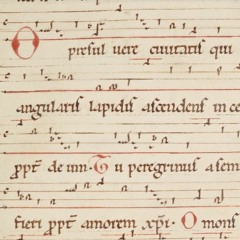 O presul uere ciuitatis qui
angularis lapidis ascendens in ce
ppt de um. Tu peregrinus a sem
fieri ppt amorem xpi. O mons